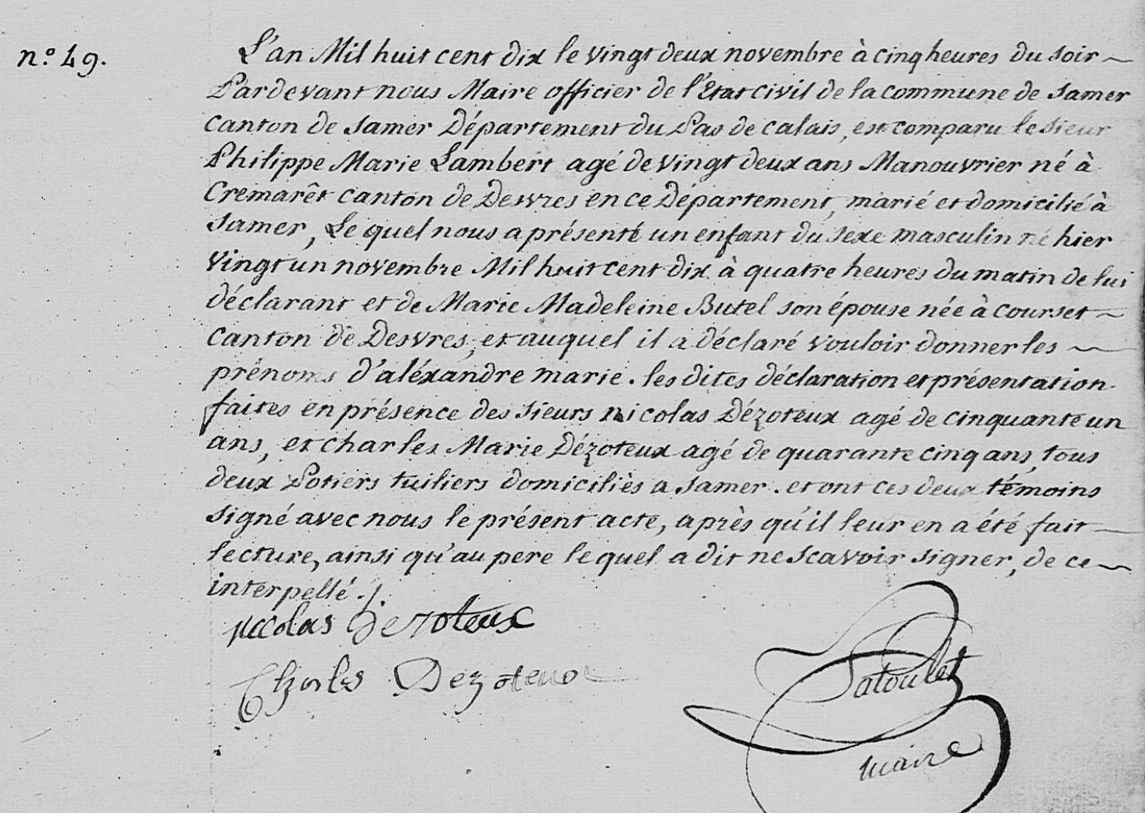 n.o 49.
L'an Mil huit cent dix le vingt deux novembre à cinq heures du soir
Pardevant nous Maire officier de l'Etat civil de la commune de Samer
Canton de Samer Département du Pas de calais, est comparu le sieur
Philippe Marie Lambert agé de vingt deux ans Manouvrier né à
Cremarêt Canton de Desvres en ce Département, marié et domicilié à
Samer, Le quel nous a présenté un enfant du sexe masculin né hier
vingt un novembre Mil huit cent dix à quatre heures du matin de lui
déclarant et de Marie Madeleine Butel son épouse née à courset
Canton de Desvres, et auquel il a déclaré vouloir donner les
prénoms d'aléxandre marie. les dites déclaration et présentation
faites en présence des sieurs nicolas Dézoteux agé de cinquante un
ans, et charles Marie Dézoteux agé de quarante cinq ans, tous
deux Potiers tuiliers domiciliès a Samer. et ont ces deux témoins
signé avec nous le présent acte, après qu'il leur en a été fait
lecture, ainsi qu'au pere le quel a dit ne scavoir signer, de ce
interpellé ./.
nicolas Dezoteux
Charles Dezoteux
Patoulet
maire